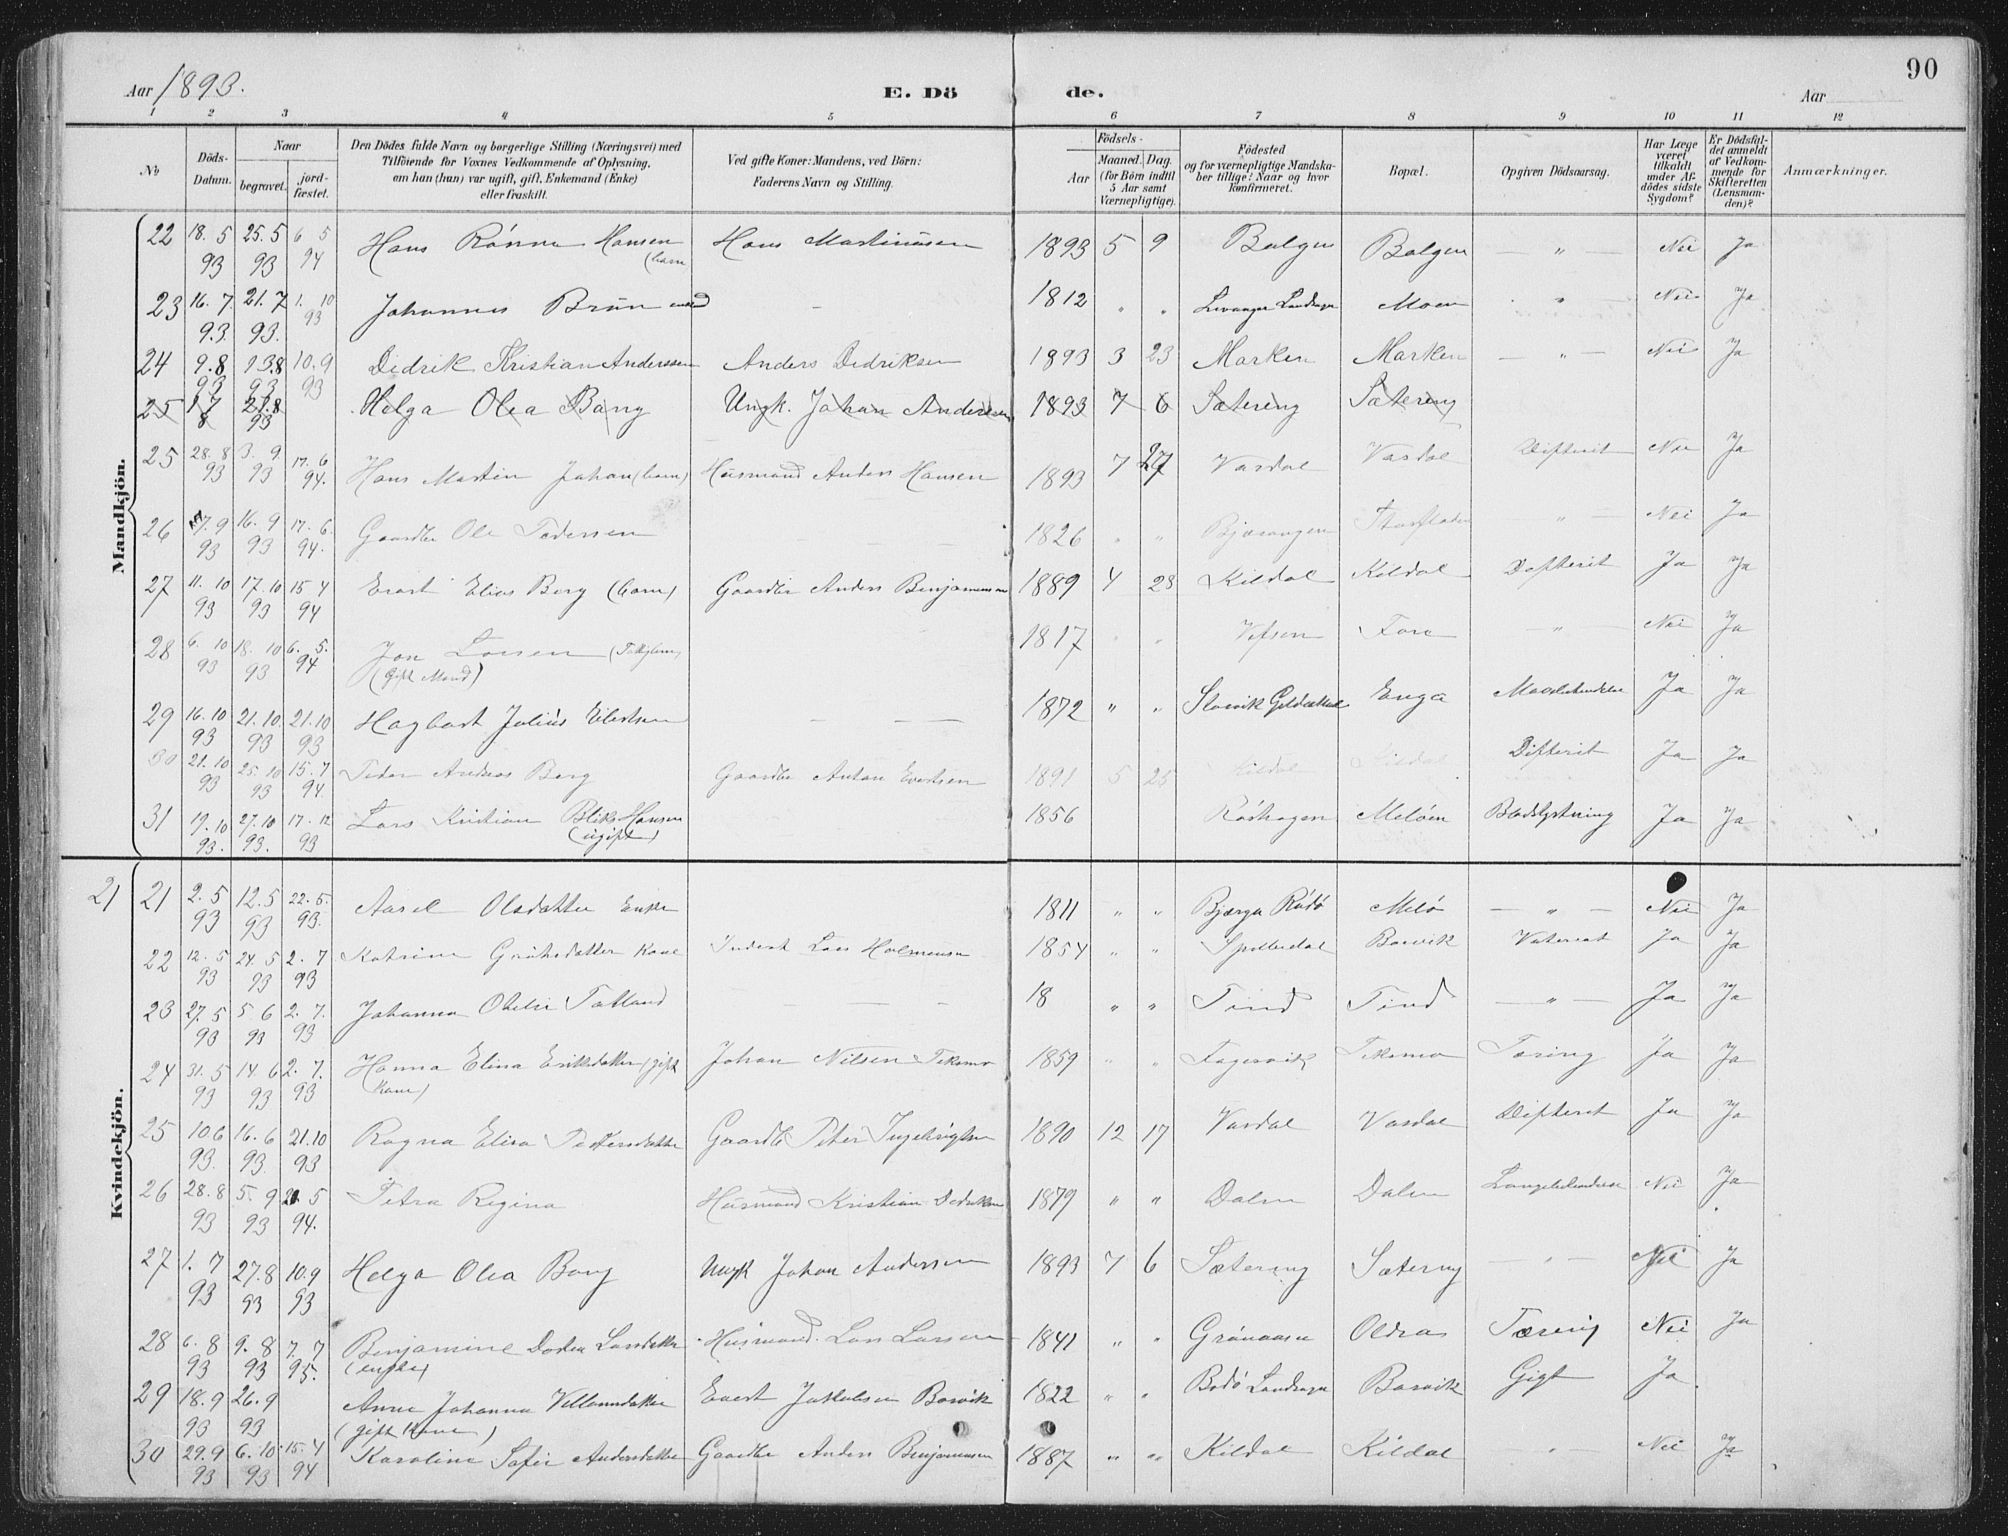 90
Aar 1893.
E. Dö de.
Aar
1 2 3 4 5 6 7 8 9 10 11 12
No
Döds-Datum.
Naar
begravet.
jordfæstet.
Den Dödes fulde Navn og borgerlige Stilling (Næringsvei) med Tilföiende for Voxnes Vedkommende af Oplysning, om han (hun) var ugift, gift, Enkemand (Enke) eller fraskilt.
Ved gifte Koner: Mandens, ved Börn: Faderens Navn og Stilling.
Födsels-
Aar
Maaned. Dag.
(for Börn indtil 5 Aar samt Værnepligtige).
Födested og for værnepligtige Mandskaber tillige: Naar og hvor konfirmeret.
Bopæl.
Opgiven Dödsaarsag.
Har Læge været tilkaldt under Afdödes sidste Sygdom?
Er Dödsfaldet anmeldt af Vedkommende for Skifteretten (Lensmanden)?
Anmærkninger.
Mandkjön.
22 18. 5 93 25. 5 93 6 5 94 Hans Rønne Hansen (barn Hans Martinusen 1893 5 9 Bolgen Bolgen — „ — Nei Ja
23 16. 7. 93. 21. 7 93. 1. 10 93 Johannes Brun — 1812 „ „ Levanger Landsogn Moen „ Nei Ja
24 9. 8 93 13.8 93 10. 9 93 Didrik Kristian Anderssen Anders Didriksen 1893 3 23 Marken Marken — „ — Nei Ja
25 17 8 21. 8 93 Helga Olea Bang Ungk. Johan Andersen 1893 7 6 Sætering Sætering
25 28. 8 93 3. 9. 93 17. 6 94. Hans Martin Johan (barn) Husmand Anders Hansen 1893 7 27 Vasdal Vasdal Difterit Nei Ja
26 9 93 16. 9 93 17. 6 94. Gaardbr Ole Pedersen 1826 „ „ Bjærangen „ — Nei Ja
27 11. 10 93 17. 10 93 15 4 94 Evart Elias Berg (barn) Gaardbr Anders Benjaminsen 1889 4 28 Kildal Kildal Difterit Ja Ja
28 6. 10 93 18. 10 93 6. 5. 94 Jon Larsen (gift Mand) 1817 „ „ Vefsen Fore — „ — Nei Ja
29 16. 10 93 21. 10. 93 21. 10 93 Hagbart Julius Eilertsen — — 1872 „ „ Storvik Gildeskaal Enga Ja Ja
30 21. 10 93 25. 10 93 15. 7 94. Peder Andreas Berg Gaardbr Anton Evertsen 1891 5 25 Kildal Kildal Difterit Ja Ja
31 19. 10 93. 27. 10 93. 17. 12 93 Lars Kristian Bliks Hansen (ugift) 1856 Rødhagen Meløen Blodstyrtning Ja Ja
Kvindekjön.
21 21 2. 5 93 12. 5 93 22. 5. 93. Olsdatter Enke 1811 „ „ Bjærga Rødø Melø — „ — Nei Ja
22 12. 5 93 24. 5 93 2. 7 93 Katrine Kone Inderst Lars 1854 „ „ Spilderdal Borvik Ja Ja
23 27. 5 93 5. 6 93 2. 7. 93 Johanna — — — 18 „ „ Tind Tind — „ — Ja Ja
24 31. 5 93 14. 6 93 2. 7. 93 Hanna Elina Eriksdatter (gift Kone) Johan Nilsen Teksmo 1859 „ „ Fagervik Teksmo Tæring Ja Ja
25 10.6 93. 16. 6 93. 21. 10 93 Ragna Elisa Pettersdatter Gaardbr Peter Ingebrigtsen 1890 12 17 Vasdal Vasdal Difterit Ja Ja
26 28. 8 93 5. 9 93 5 94. Petra Regina Husmand Kristian Dedriksen 1879 „ „ Dalen Dalen Nei Ja
27 1. 7 93 27. 8 93 10. 9 93 Helga Olea Bang Ungk Johan Andersen 1893 7 6 Sætering Sætering „ — Nei Ja
28 6. 8 93 9. 8 93 7. 7 95. Benjamine Larsdatter Husmand Lars Larsen 1841 „ „ Grønaasen Oldraa Tæring Nei Ja
29 18. 9 93 26. 9 93 Anne Johanna (gift Kone) Evert Jakobsen Borvik 1822 „ „ Bodø Landsogn Borvik Gigt Ja
30 29. 9 93 6. 10 93 15. 4 94 Karoline Sofie Andersdatter Gaardbr Anders Benjaminsen 1887 „ „ Kildal Kildal „ Nei Ja